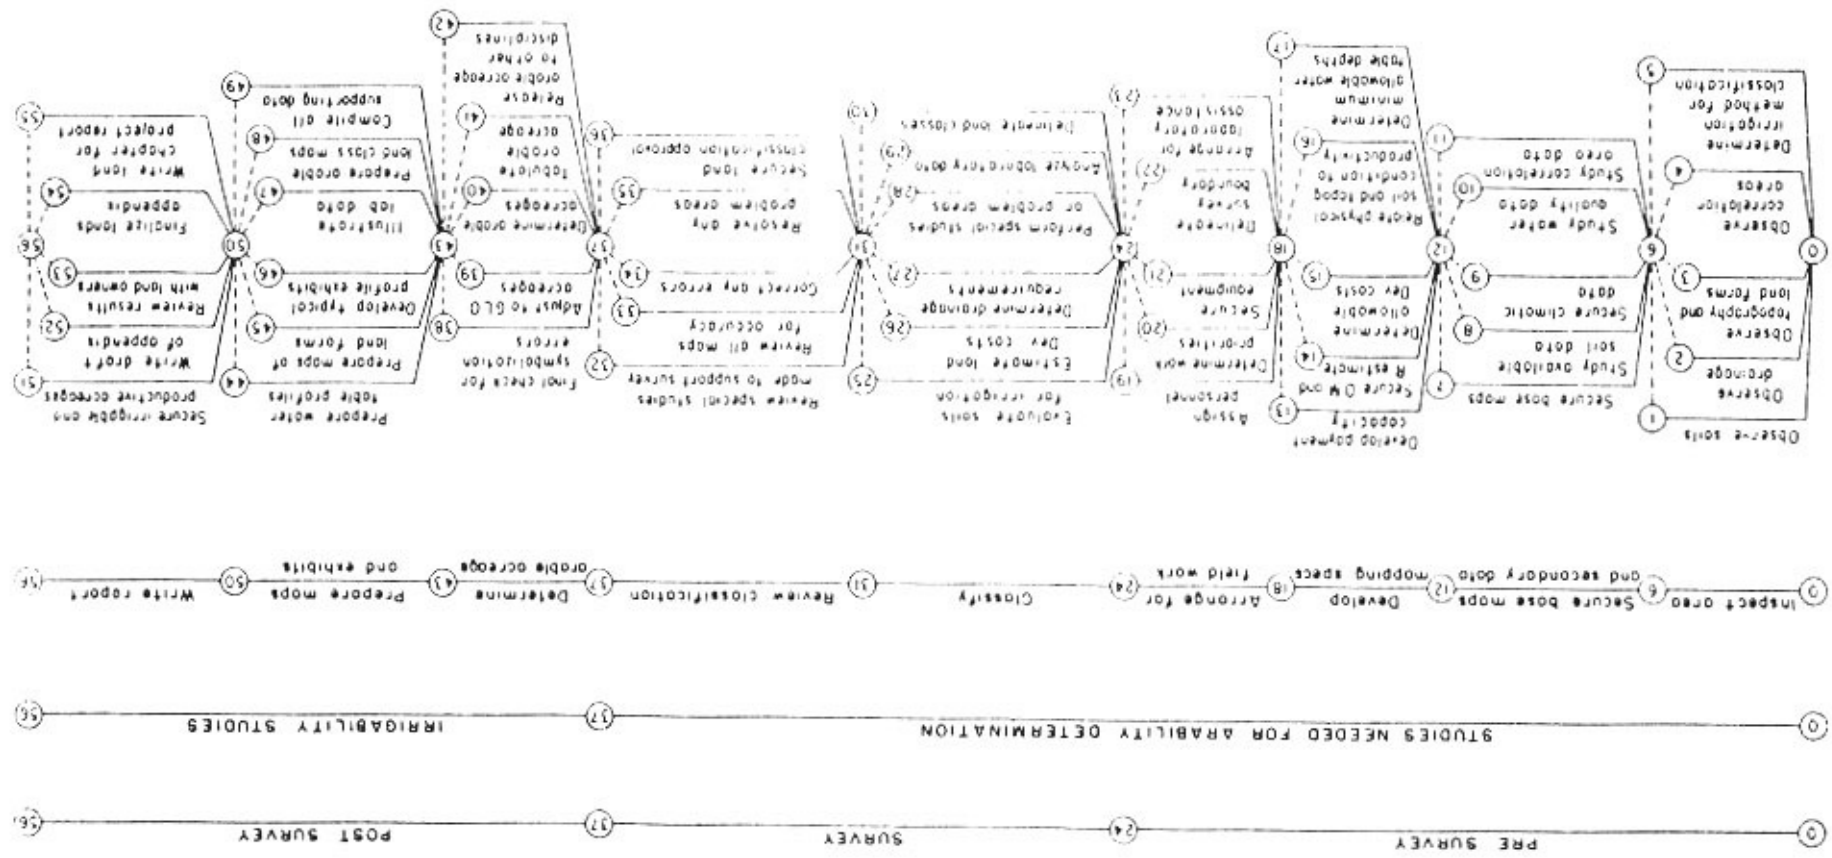 PRE SURVEY
SURVEY
POST SURVEY
0
24
37
56
STUDIES NEEDED FOR ARABILITY DETERMINATION
IRRIGABILITY STUDIES
0
37
56
0
Inspect area
6
Secure base maps
and secondary data
12
Develop
mapping specs
18
Arrange for
field work
24
Classify
31
Review classification
37
Determine
arable acreage
43
Prepare maps
and exhibits
50
Write report
56
0
Observe soils
1
Observe
drainage
2
Observe
topography and
land forms
3
Observe
correlation
areas
4
Determine
irrigation
method for
classification
5
6
Secure base maps
7
Study available
soil data
8
Secure climatic
data
9
Study water
quality data
10
Study correlation
area data
11
12
Develop payment
capacity
13
Secure OM and
R estimate
14
Determine
allowable
Dev costs
15
Relate physical
soil and topog
condition to
productivity
16
Determine
minimum
allowable water
table depths
17
18
Assign
personnel
19
Determine work
priorities
20
Secure
equipment
21
Delineate
survey
boundary
22
Arrange for
laboratory
assistance
23
24
Evaluate soils
for irrigation
25
Estimate land
Dev costs
26
Determine drainage
requirements
27
Perform special studies
or problem areas
28
Analyze laboratory data
29
Delineate land classes
30
31
Review special studies
made to support survey
32
Review all maps
for accuracy
33
Correct any errors
34
Resolve any
problem areas
35
Secure land
classification approval
36
37
Final check for
symbolization
errors
38
Adjust to GLO
acreages
39
Determine arable
acreages
40
Tabulate
arable
acreage
41
Release
arable acreage
to other
disciplines
42
43
Prepare water
table profiles
44
Prepare maps of
land forms
45
Develop typical
profile exhibits
46
Illustrate
lab data
47
Prepare arable
land class maps
48
Compile all
supporting data
49
50
Secure irrigable and
productive acreages
51
Write draft
of appendix
52
Review results
with land owners
53
Finalize lands
appendix
54
Write land
chapter for
project report
55
56